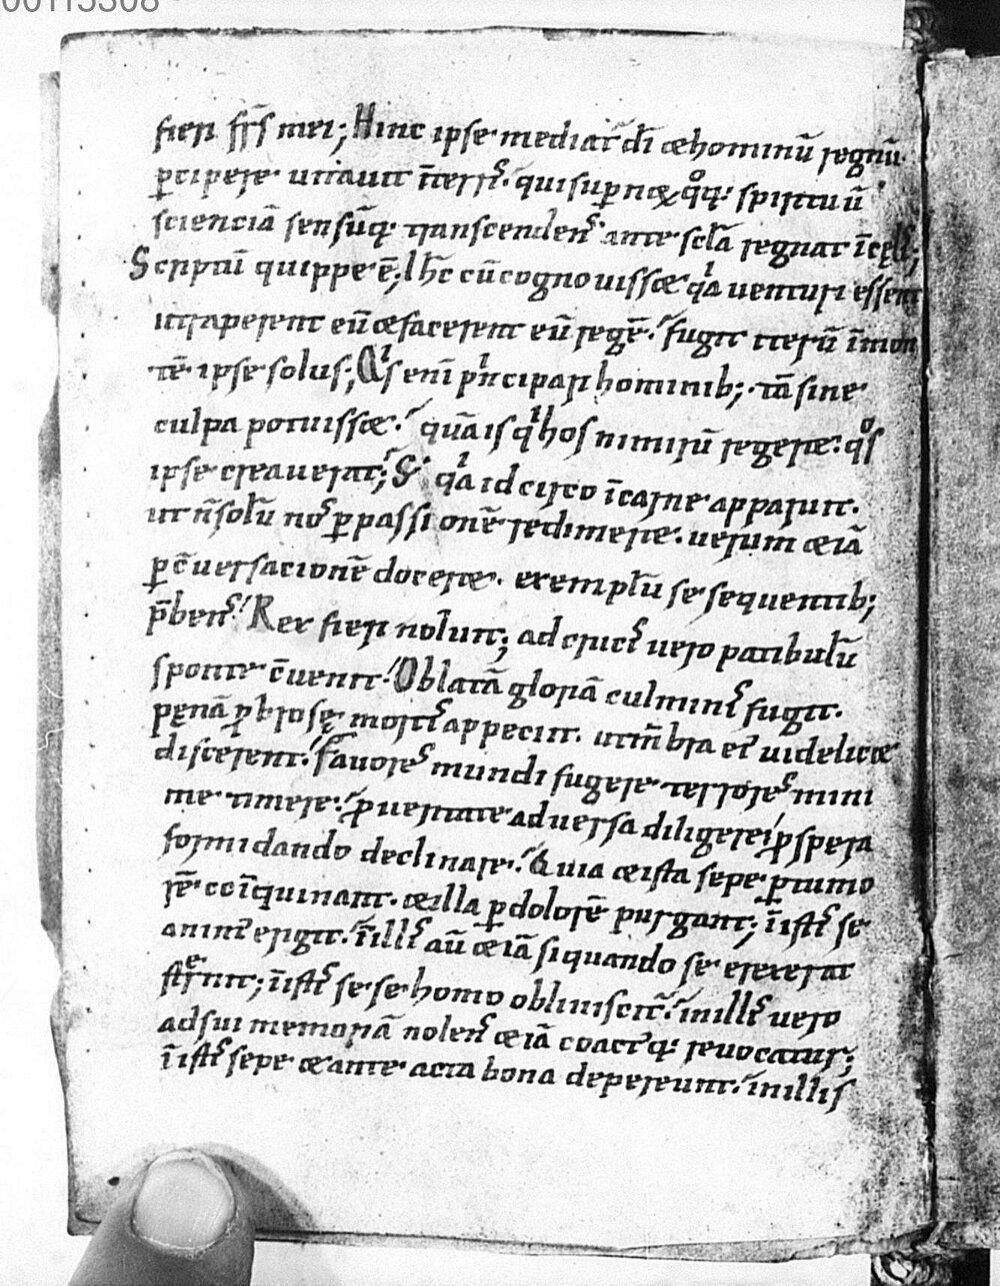 00115308
fieri fr̄s mei; Hinc ipse mediat̄ dī & hominū regnū
ꝑcipere uitauit īterris. qui suꝑnoꝝ qͦq; spirituū
scienciā sensūq; transcendens ante sc̄la regnat īcęlis;
Scriptū quippe ē; Ihc̄ cū cognouisset qͥa uenturi essent
ut raperent eū & facerent eū regē. fugit iterū īmon
tē ipse solus; Qͥs enī pͥncipari hominib; tā sine
culpa potuisset. quā is qͥ hos nimirū regeret. qͦs
ipse creauerat; S; qͥa idcirco īcarne apparuit.
ut n̄ solū nos ꝑ passionē redimeret. uerum & iā
ꝑ c̄uersacionē doceret. exemplū se sequentib;
p̄bens. Rex fieri noluit; ad crucis uero patibulū
sponte c̄uenit. Oblatā gloriā culminis fugit.
pęnā ꝓbrosę mortis appeciit. ut mēbra eiꝰ uidelicet
discerent. Fauores mundi fugere terrores mini
me timere. ꝓ ueritate aduersa diligere. ꝓspera
formidando declinare. Quia & ista sepe ꝑ tumo
rē coīquinant. & illa ꝑ dolorē purgant; ī istis se
animꝰ erigit. ī illis aū & iā siquando se erexerat
sternit; ī istis sese homo obliuiscit̄. in illis uero
ad sui memoriā nolens & iā coactꝰq; reuocatur;
ī istis sepe & ante acta bona depereunt. in illis